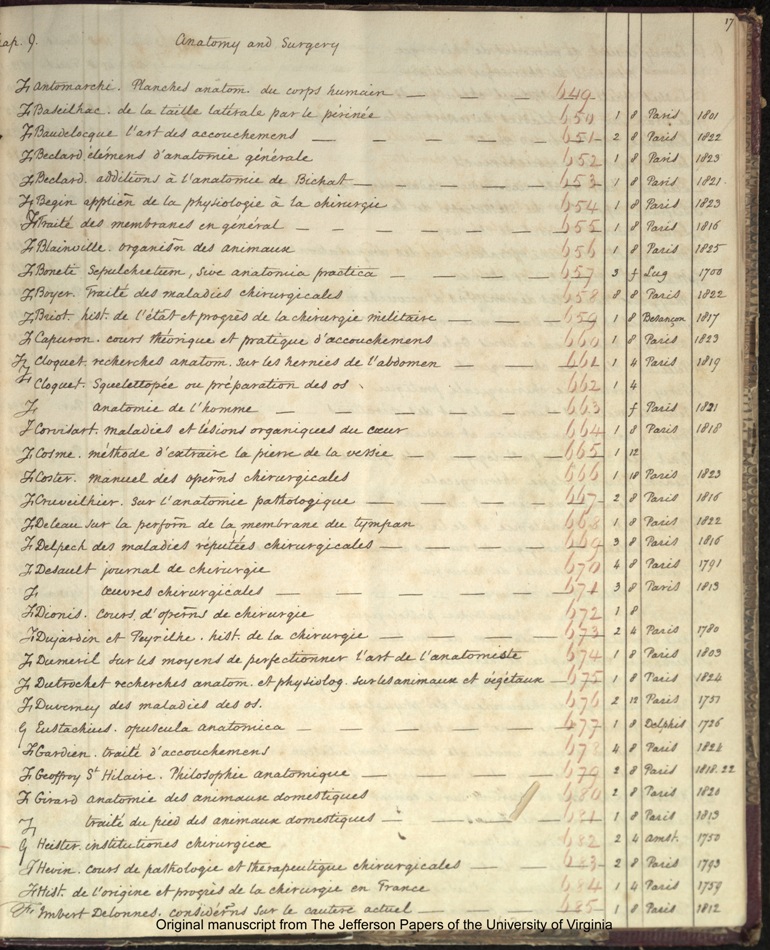 17
ap. 9. Anatomy and Surgery
F. Antomarchi. Planches anatom. du corps humain — — — — 649
F. Baseilhac. de la taille latérale par le périnée 650 1 8 Paris 1801
F. Baudelocque l'art des accouchemens — — — — 651 2 8 Paris 1822
F. Beclard élémens d'anatomie générale 652 1 8 Paris 1823
F. Beclard. additions à l'anatomie de Bichat — — — — 653 1 8 Paris 1821.
F. Begin applicn̄ de la physiologie à la chirurgie 654 1 8 Paris 1823
F. Traité des membranes en général — — — — 655 1 8 Paris 1816
F. Blainville. organisn̄ des animaux 656 1 8 Paris 1825
F. Boneti Sepulchretum, sive anatomia practica — — — — 657 3 f Lug 1700
F. Boyer. Traité des maladies chirurgicales 658 8 8 Paris 1822
F. Briot. hist. de l'état et progrès de la chirurgie militaire — — — 659 1 8 Besançon 1817
F. Capuron. cours théorique et pratique d'accouchemens 660 1 8 Paris 1823
F. Cloquet. recherches anatom. sur les hernies de l'abdomen — — — 661 1 4 Paris 1819
F. Cloquet. Squelettopée ou préparation des os 662 1 4
F. anatomie de l'homme — — — — 663 f Paris 1821
F Corvisart. maladies et lésions organiques du cœur 664 1 8 Paris 1818
F. Cosme. méthode d'extraire la pierre de la vessie — — — — 665 1 12
F. Coster. manuel des opern̄s chirurgicales 666 1 18 Paris 1823
F. Cruveilhier. sur l'anatomie pathologique — — — — 667 2 8 Paris 1816
F. Deleau sur la perforn̄ de la membrane du tympan 668 1 8 Paris 1822
F. Delpech des maladies réputées chirurgicales — — — — 669 3 8 Paris 1816
F. Desault journal de chirurgie 670 4 8 Paris 1791
F. œuvres chirurgicales — — — — 671 3 8 Paris 1813
F. Dionis. cours d'opern̄s de chirurgie 672 1 8
F. Dujardin et Peyrilhe. hist. de la chirurgie — — — — 673 2 4 Paris 1780
F. Dumeril sur les moyens de perfectionner l'art de l'anatomiste 674 1 8 Paris 1803
F. Dutrochet recherches anatom. et physiolog. sur les animaux et végétaux — 675 1 8 Paris 1824
F. Duverney des maladies des os. 676 2 12 Paris 1751
G Eustachius. opuscula anatomica — — — — 677 1 8 Delphis 1726
F. Gardien. traité d'accouchemens 678 4 8 Paris 1824
F. Geoffroy St Hilaire. Philosophie anatomique — — — — 679 2 8 Paris 1818.22
F. Girard anatomie des animaux domestiques 680 2 8 Paris 1820
F. traité du pied des animaux domestiques — — 681 1 8 Paris 1813
G Heister. institutiones chirurgicæ 682 2 4 Amst. 1750
F Hevin. cours de pathologie et therapeutique chirurgicales — — — 683 2 8 Paris 1793
F. Hist. de l'origine et progrès de la chirurgie en France 684 1 4 Paris 1759
F. Imbert Delonnes. considérn̄s sur le cautere actuel — — — — 685 1 8 Paris 1812
Original manuscript from The Jefferson Papers of the University of Virginia